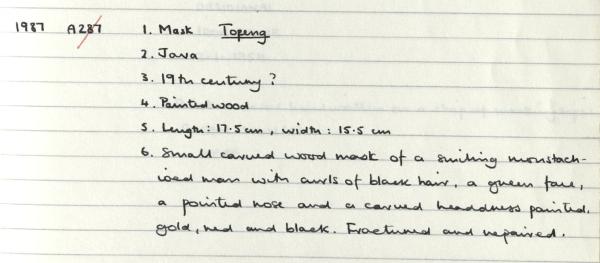 1987 A287 1. Mask Topeng
2. Java
3. 19th century ?
4. Painted wood
5. Length: 17.5 cm, width: 15.5 cm
6. Small carved wood mask of a smiling moustach-
ioed man with curls of black hair, a green face,
a pointed nose and a carved headdress painted
gold, red and black. Fractured and repaired.